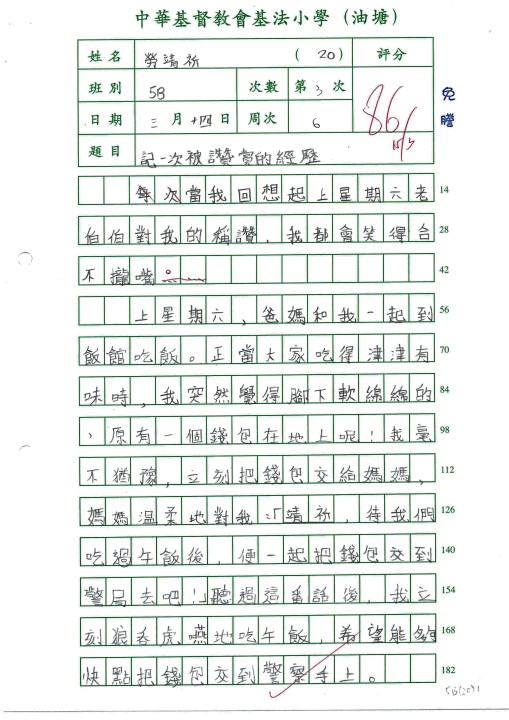 中華基督教會基法小學（油塘）
姓名 勞靖祈 （20） 評分
班別 5B 次數 第3次 86 免謄
日期 三月十四日 周次 6 15/3
題目 記一次被讚賞的經歷
每次當我回想起上星期六老 14
伯伯對我的稱讚，我都會笑得合 28
不攏嘴。 42
上星期六，爸媽和我一起到 56
飯館吃飯。正當大家吃得津津有 70
味時，我突然覺得腳下軟綿綿的 84
，原有一個錢包在地上呢！我毫 98
不猶豫，立刻把錢包交給媽媽， 112
媽媽溫柔地對我：「靖祈，待我們 126
吃過午飯後，便一起把錢包交到 140
警局去吧！」聽過這番話後，我立 154
刻狼吞虎嚥地吃午飯，希望能夠 168
快點把錢包交到警察手上。 182